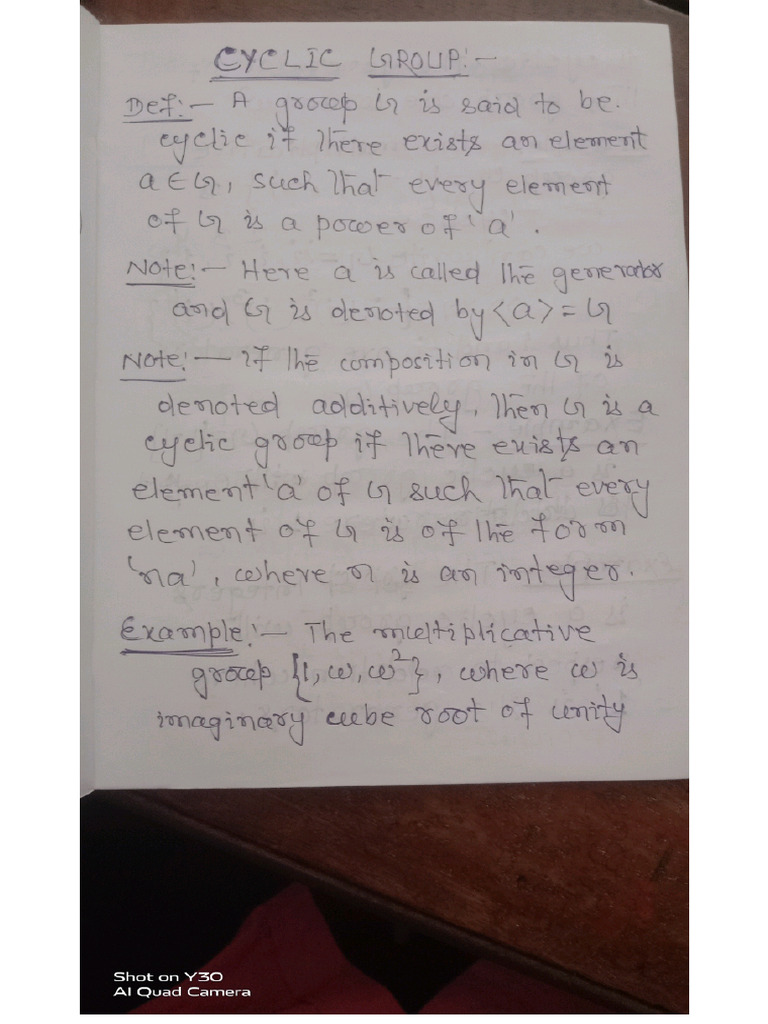 CYCLIC GROUP:-
Def:- A group G is said to be.
cyclic if there exists an element
a ∈ G, such that every element
of G is a power of 'a'.
Note:- Here a is called the generator
and G is denoted by <a> = G
Note:- If the composition in G is
denoted additively, then G is a
cyclic group if there exists an
element 'a' of G such that every
element of G is of the form
'na', where n is an integer.
Example:- The multiplicative
group {1, ω, ω²}, where ω is
imaginary cube root of unity
Shot on Y30
AI Quad Camera